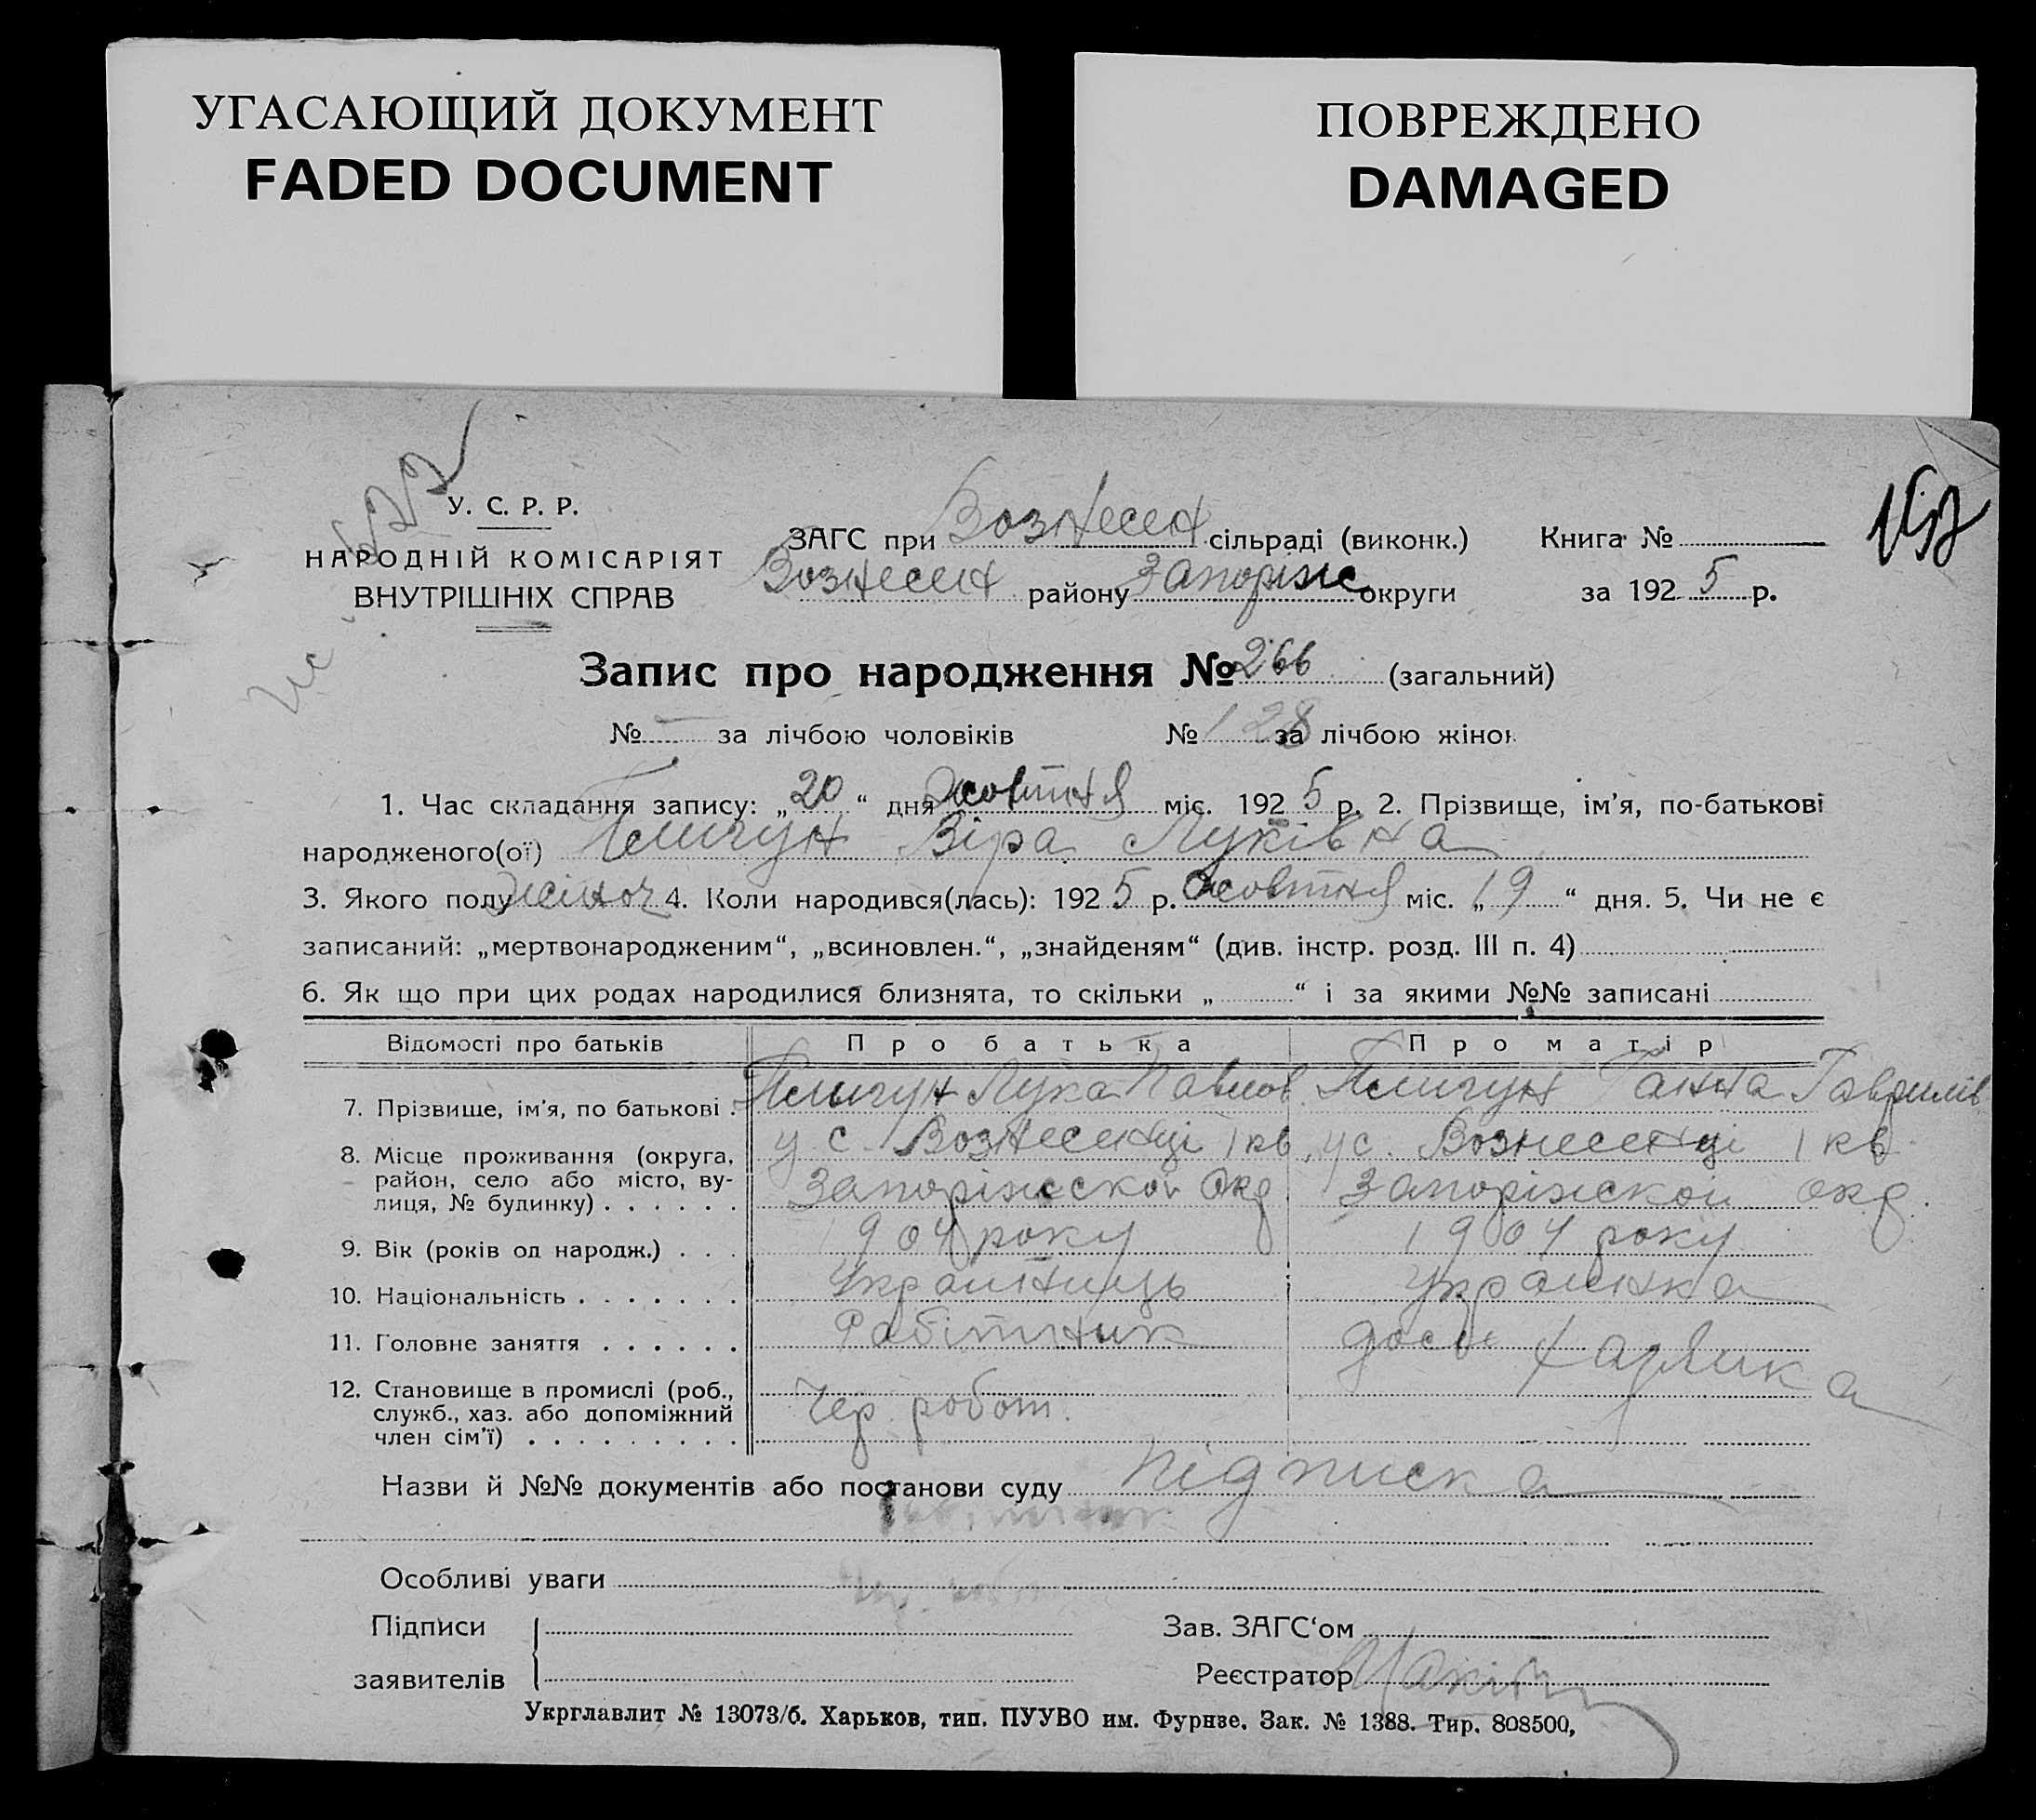 УГАСАЮЩИЙ ДОКУМЕНТ
FADED DOCUMENT
ПОВРЕЖДЕНО
DAMAGED
У. С. Р. Р.
НАРОДНІЙ КОМІСАРІЯТ
ВНУТРІШНІХ СПРАВ
ЗАГС при Вознесен сільраді (виконк.) Книга №
Вознесен району Запоріж округи за 192 5 р.
Запис про народження № 266 (загальний)
№ — за лічбою чоловіків № 128 за лічбою жінок
1. Час складання запису: „ 20 “ дня жовтня міс. 192 5 р. 2. Прізвище, ім’я, по-батькові
народженого(ої) Віра Луківна
3. Якого полу жіноч 4. Коли народився(лась): 192 5 р. жовтня міс. „ 19 “ дня. 5. Чи не є
записаний: „мертвонародженим“, „всиновлен.“, „знайденям“ (див. інстр. розд. III п. 4)
6. Як що при цих родах народилися близнята, то скільки „ “ і за якими №№ записані
Відомості про батьків Про батька Про матір
7. Прізвище, ім’я, по батькові . Лука Павлов. Ганна Гаврилів
8. Місце проживання (округа, у с. Вознесенці 1 кв. у с. Вознесенці 1 кв
район, село або місто, ву- Запоріжской Окр. Запоріжской окр.
лиця, № будинку) . . . . . .
9. Вік (років од народж.) . . . 1904 року 1904 року
10. Національність . . . . . . . Українець Українка
11. Головне заняття . . . . . . Рабітник
12. Становище в промислі (роб., Чер. робот.
служб., хаз. або допоміжний
член сім’ї) . . . . . . . . .
Назви й №№ документів або постанови суду підписка
Особливі уваги
Підписи Зав. ЗАГС‘ом
заявителів Реєстратор
Укрглавлит № 13073/б. Харьков, тип. ПУУВО им. Фурнзе. Зак. № 1388. Тир. 808500,